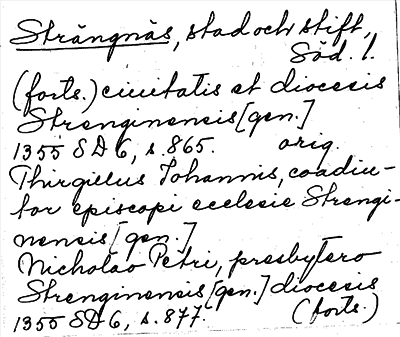 Strängnäs, stad och stift,
Söd. l.
(forts.) ciuitatis et diocesis
Strenginensis [gen.]
1355 SD 6, s. 865. orig.
Thirgillus Johannis, coadiu-
tor episcopi ecclesie Strengi-
nensis [gen.]
Nicholao Petri, presbytero
Strenginensis [gen.] diocesis
1355 SD 6, s. 877. (forts.)